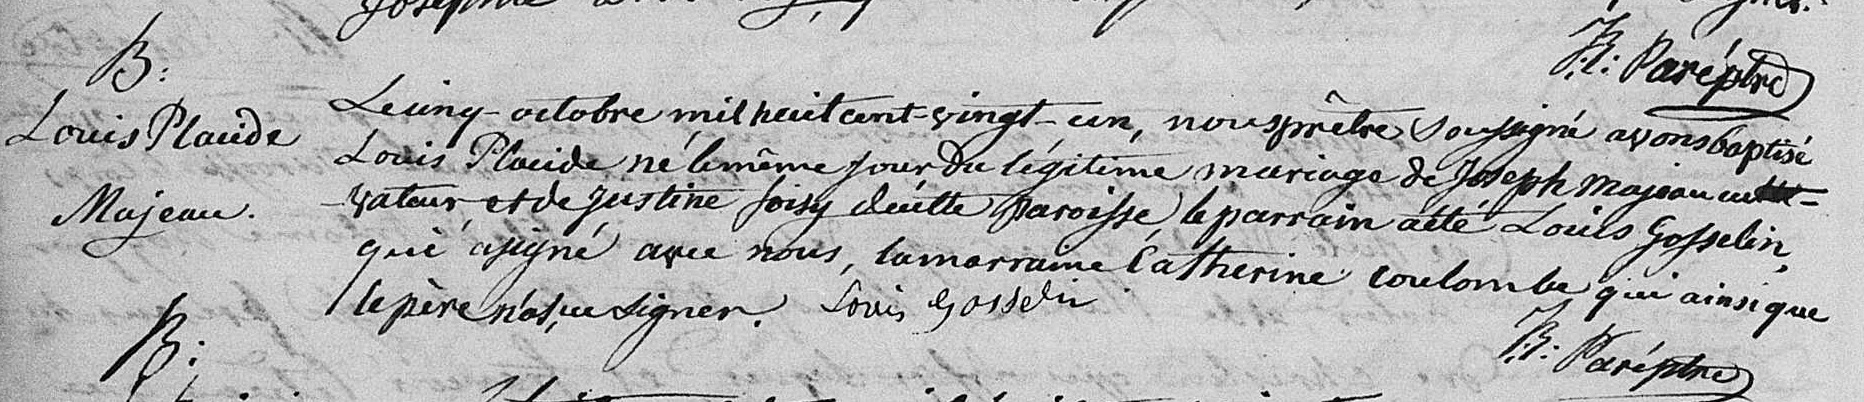 Josephte
B:
Louis Placide
Majeau.
F: F: Paré ptre
Le cinq octobre mil huit cent-vingt-un, nous prêtre soussigné avons baptisé
Louis Placide né le même jour du légitime mariage de Joseph Majeau culti-
-vateur et de Justine foisy de cette paroisse, le parrain a été Louis Gosselin,
qui a signé avec nous, la marraine Catherine Coulombe qui ainsi que
le père n'a sçu signer. Louis Gosselin
F: F: Paré ptre
B: